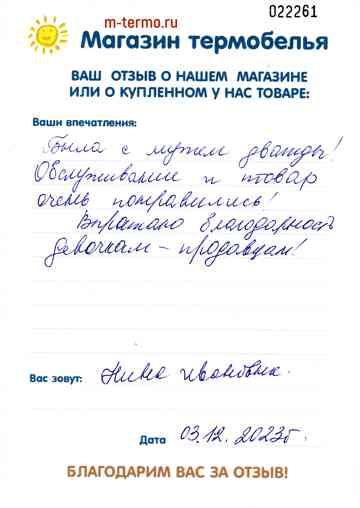 022261
m-termo.ru
Магазин термобелья
ВАШ ОТЗЫВ О НАШЕМ МАГАЗИНЕ
ИЛИ О КУПЛЕННОМ У НАС ТОВАРЕ:
Ваши впечатления:
Была с мужем дважды!
Обслуживание и товар
очень понравились!
Выражаю благодарность
девочкам - продавцам!
Вас зовут: Нина Ивановна.
Дата 03.12.2023г.
БЛАГОДАРИМ ВАС ЗА ОТЗЫВ!